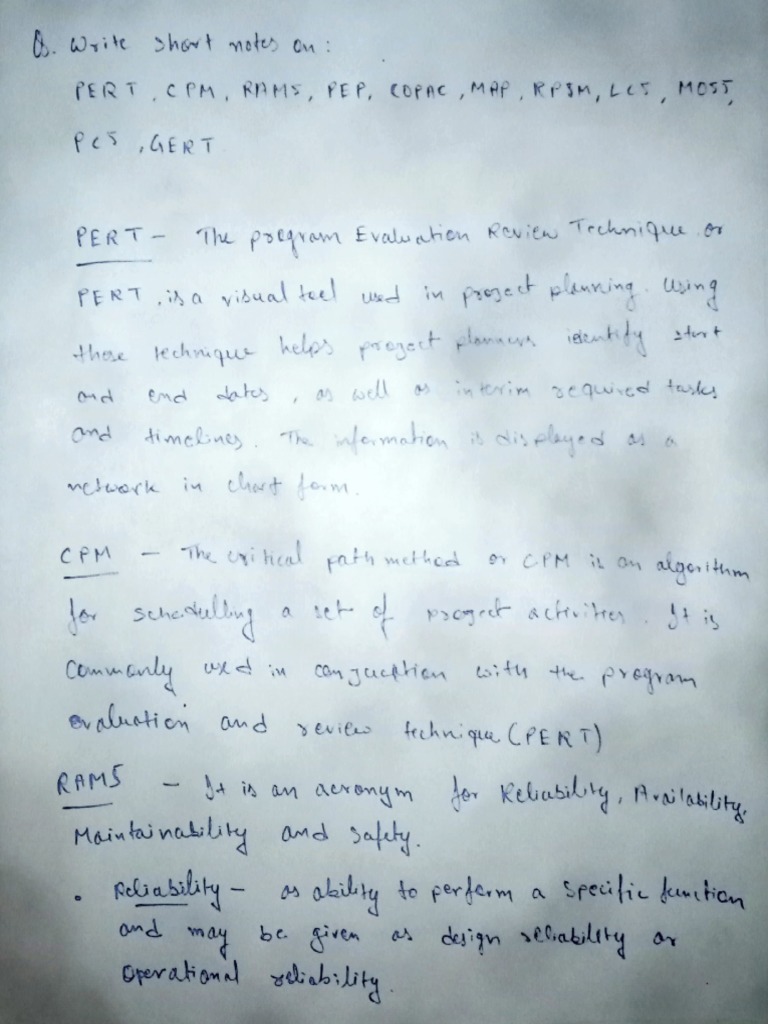 Q. Write short notes on :
PERT, CPM, RAMS, PEP, COPAC, MAP, RPSM, LCS, MOSS,
PCS, GERT
PERT - The program Evaluation Review Technique or
PERT, is a visual tool used in project planning. Using
these technique helps project planners identify start
and end dates, as well as interim required tasks
and timelines. The information is displayed as a
network in chart form.
CPM - The critical path method or CPM is an algorithm
for schedulling a set of project activities. It is
commonly used in conjucption with the program
evaluation and review technique (PERT)
RAMS - It is an acronym for Reliability, Availability,
Maintainability and safety.
• Reliability - as ability to perform a specific function
and may be given as design reliability or
operational reliability.